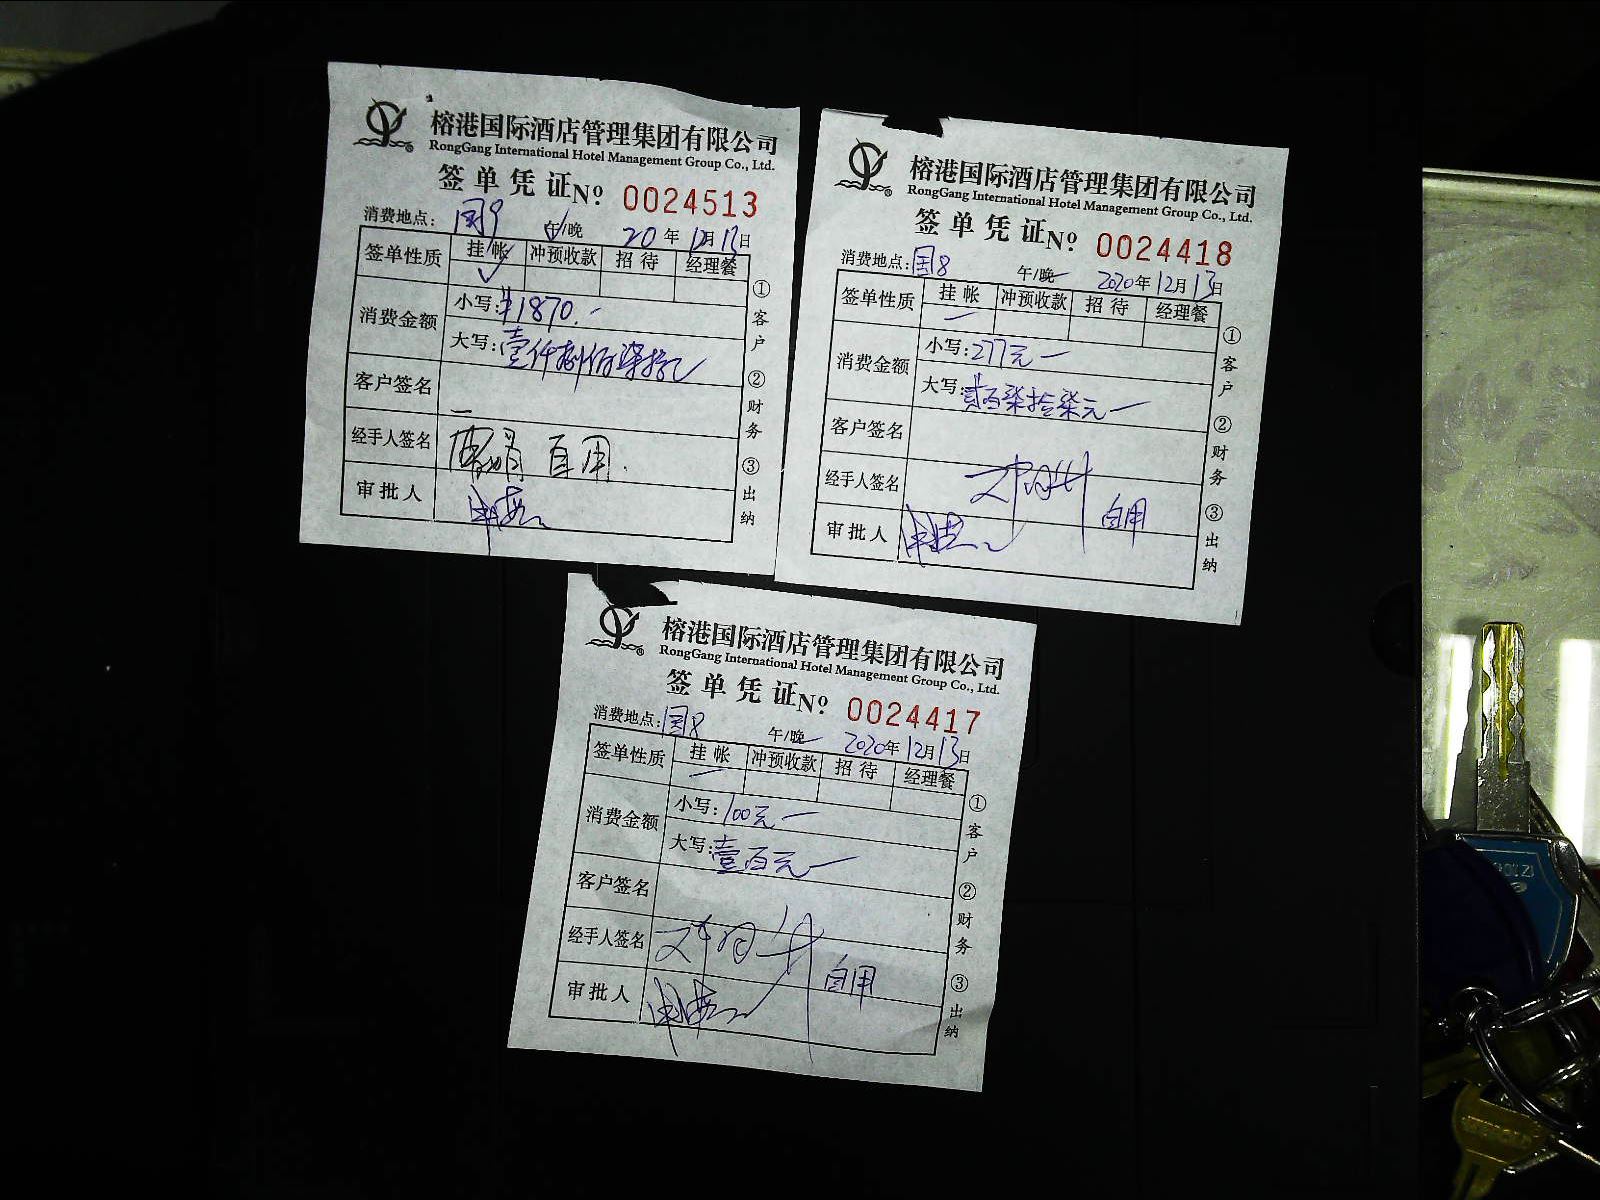 榕港国际酒店管理集团有限公司
RongGang International Hotel Management Group Co., Ltd.
签单凭证 Nº 0024513
消费地点: 国9 午/晚 20年12月13日
签单性质 挂帐 冲预收款 招待 经理餐
消费金额 小写: ¥1870.-
大写: 壹仟捌佰柒拾元
客户签名
经手人签名 自用.
审批人
①客户 ②财务 ③出纳
榕港国际酒店管理集团有限公司
RongGang International Hotel Management Group Co., Ltd.
签单凭证 Nº 0024418
消费地点: 国8 午/晚 2020年12月13日
签单性质 挂帐 冲预收款 招待 经理餐
消费金额 小写: 277元
大写: 贰百柒拾柒元
客户签名
经手人签名 自用
审批人
①客户 ②财务 ③出纳
榕港国际酒店管理集团有限公司
RongGang International Hotel Management Group Co., Ltd.
签单凭证 Nº 0024417
消费地点: 国8 午/晚 2020年12月13日
签单性质 挂帐 冲预收款 招待 经理餐
消费金额 小写: 100元
大写: 壹百元
客户签名
经手人签名 自用
审批人
①客户 ②财务 ③出纳